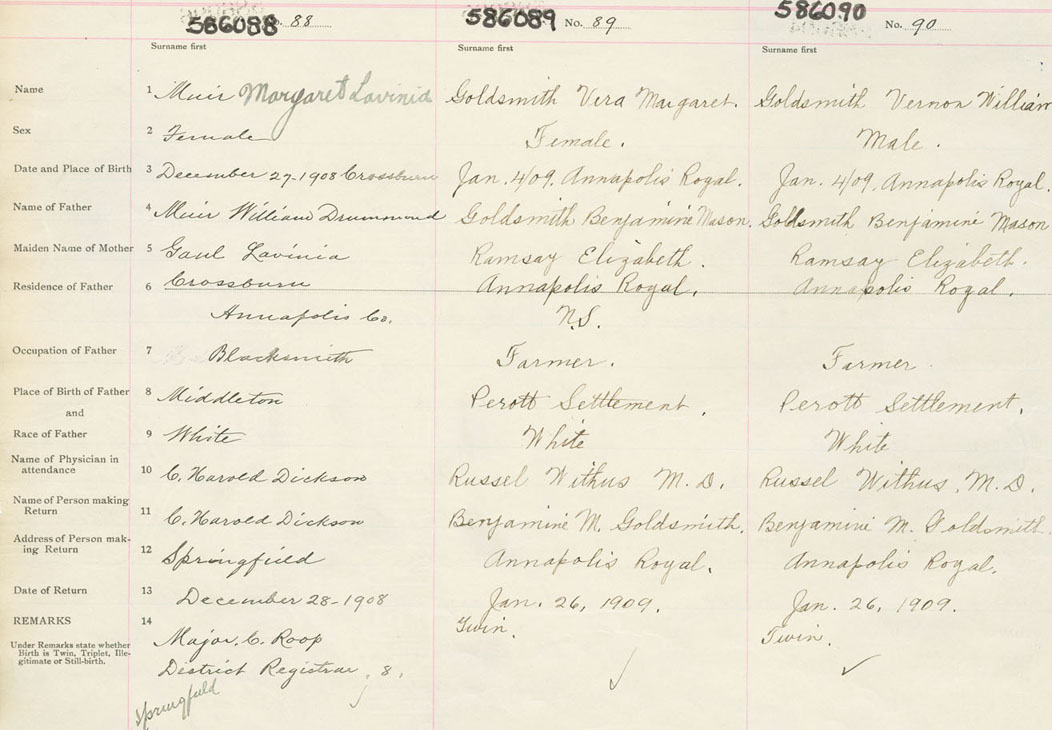 586088 No. 88 586089 No. 89 586090 No. 90
Surname first Surname first Surname first
Name 1 Muir Margaret Lavinia Goldsmith Vera Margaret. Goldsmith Vernon William
Sex 2 Female Female. Male.
Date and Place of Birth 3 December 27-1908 Crossburn Jan. 4/09. Annapolis Royal. Jan. 4/09. Annapolis Royal.
Name of Father 4 Muir William Drummond Goldsmith Benjamine Mason. Goldsmith Benjamine Mason
Maiden Name of Mother 5 Gaul Lavinia Ramsay Elizabeth. Ramsay Elizabeth.
Residence of Father 6 Crossburn Annapolis Royal. Annapolis Royal.
Annapolis Co. N.S.
Occupation of Father 7 Blacksmith Farmer. Farmer.
Place of Birth of Father 8 Middleton Perott Settlement. Perott Settlement.
and
Race of Father 9 White White White
Name of Physician in
attendance 10 C. Harold Dickson Russel Withus M.D. Russel Withus. M.D.
Name of Person making
Return 11 C. Harold Dickson Benjamine M. Goldsmith. Benjamine M. Goldsmith.
Address of Person mak-
ing Return 12 Springfield Annapolis Royal. Annapolis Royal.
Date of Return 13 December 28-1908 Jan. 26, 1909. Jan. 26, 1909.
REMARKS 14 Twin. Twin.
Under Remarks state whether Major. C. Roop
Birth is Twin, Triplet, Ille-
gitimate or Still-birth. District Registrar, 8.
Springfield